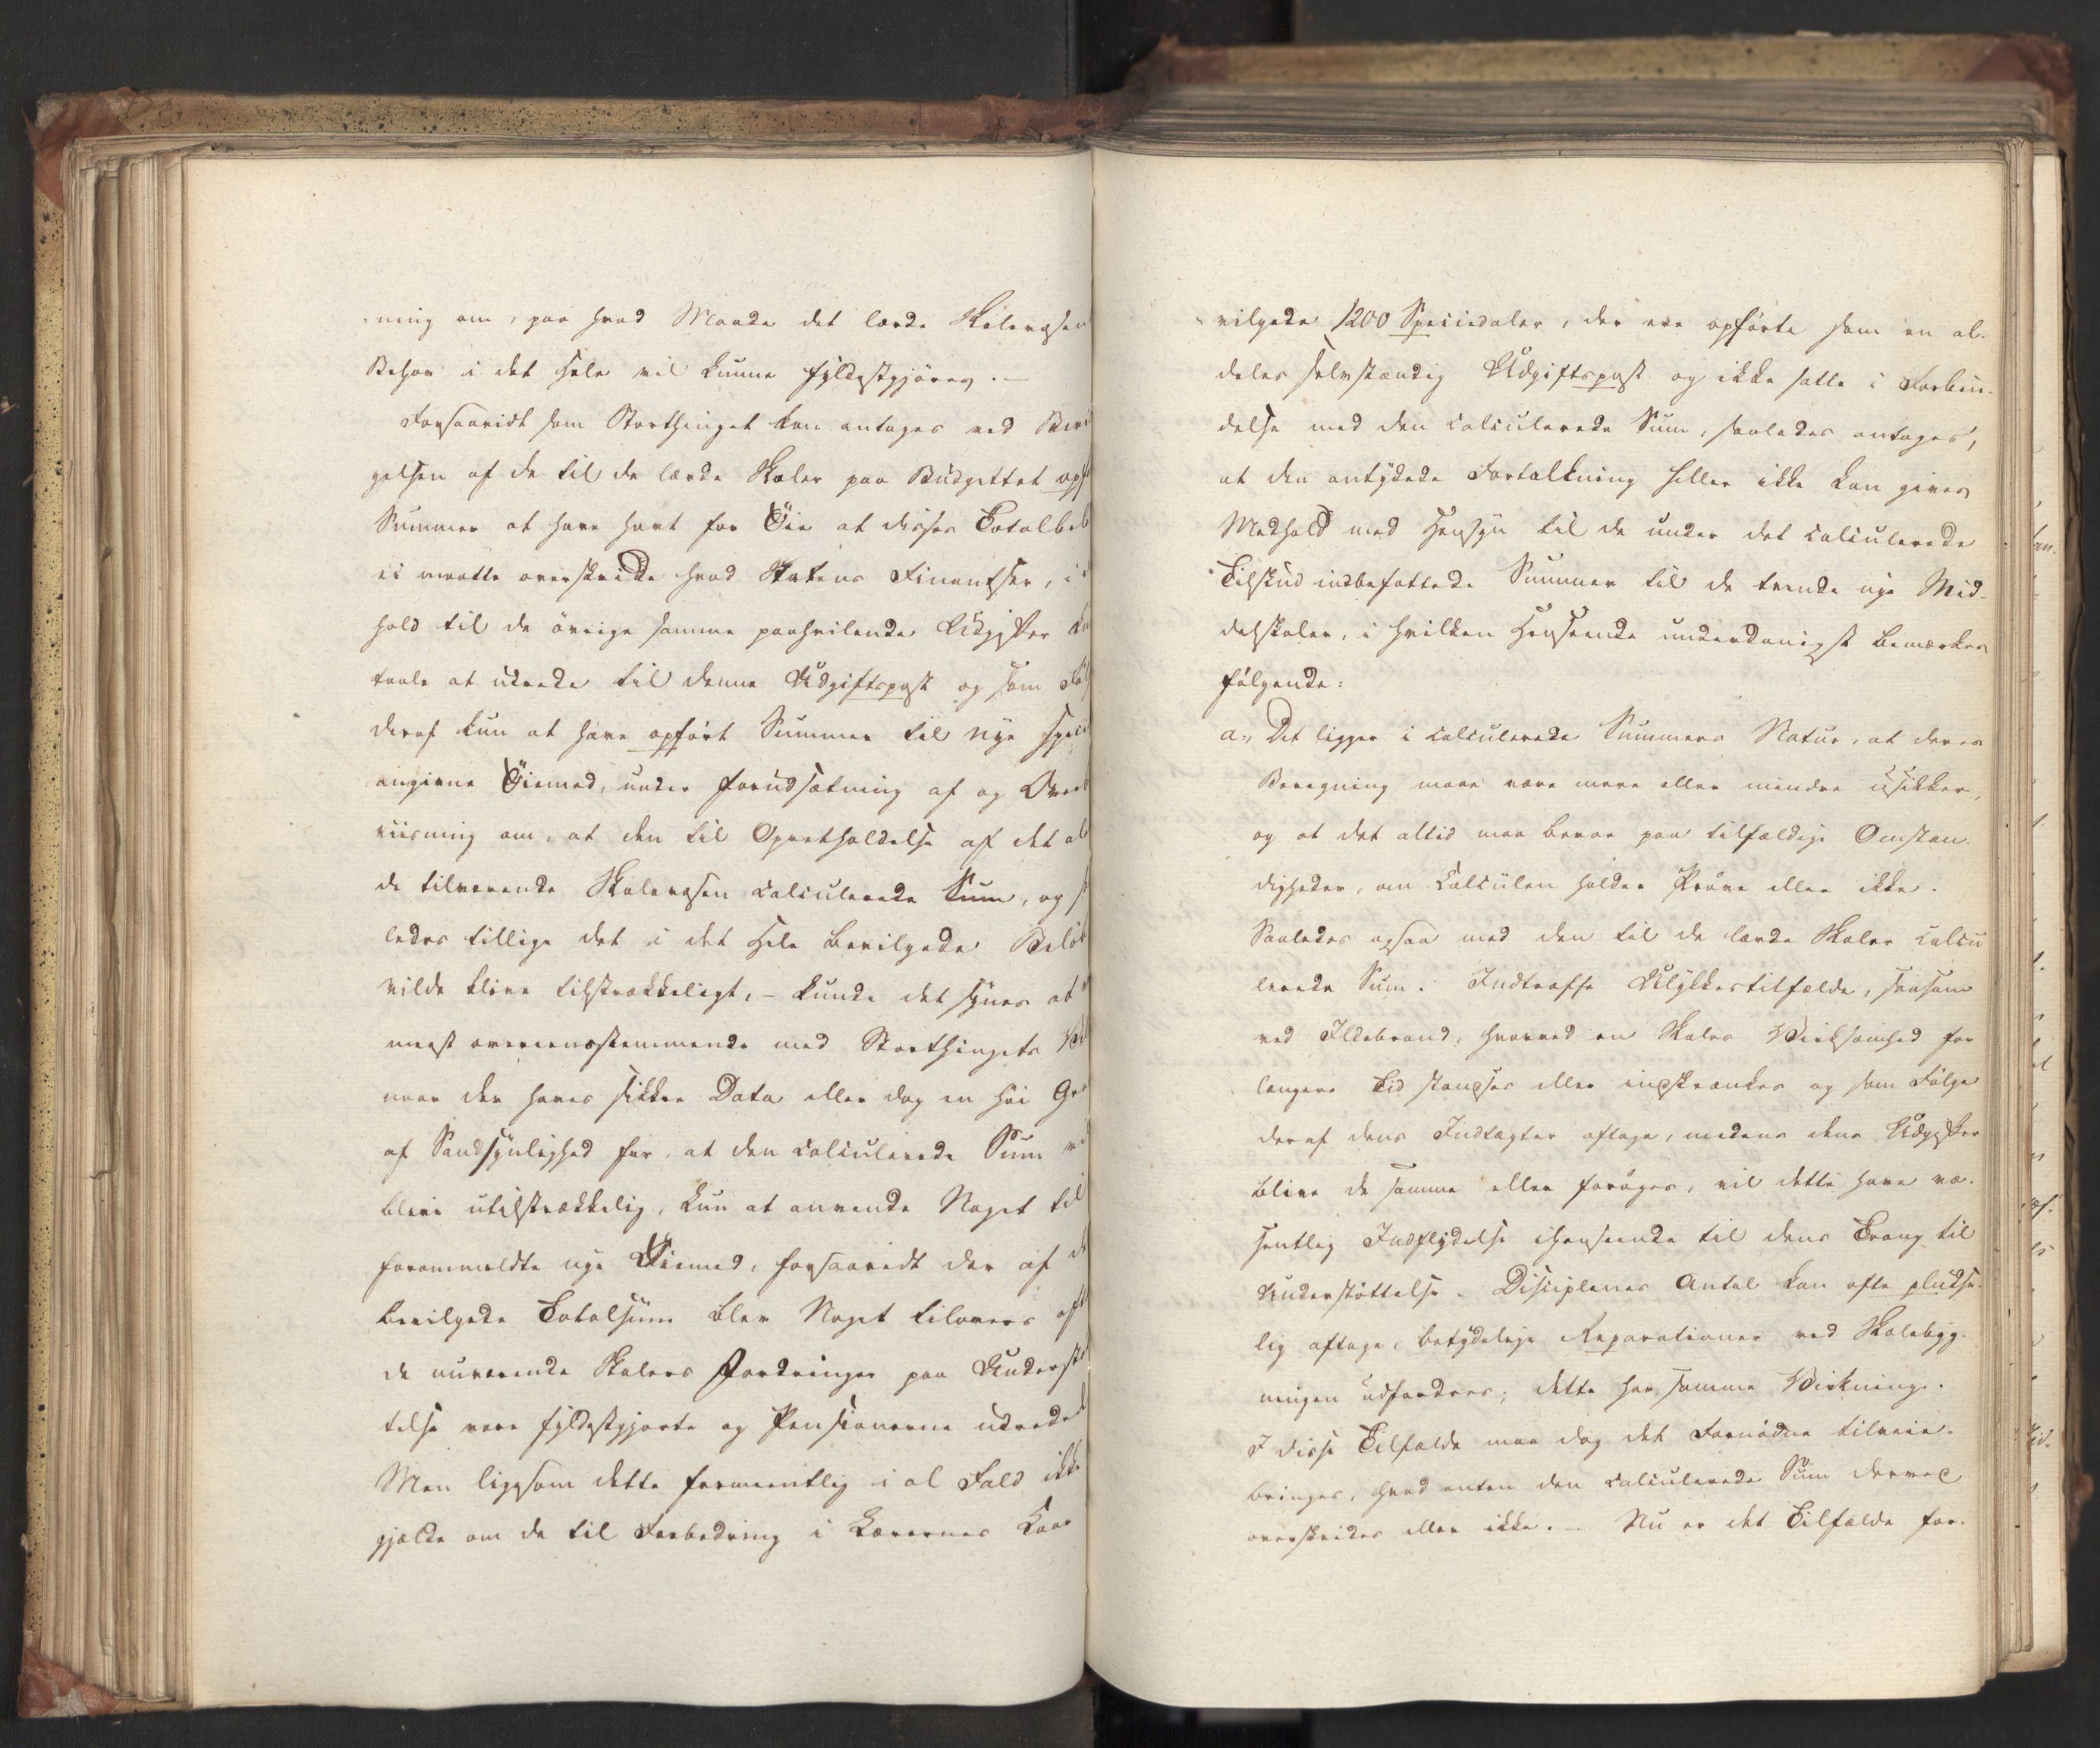 ning om, paa hvad Maade det lærde Skolevæsen
Behov i det Hele vil kunne fyldestgjøres. –
Forsaavidt som Storthinget kan antages ved Bevi
gelsen af de til de lærde Skoler paa Budgettet opf
Summer at have havt for Öie at disses Totalbel
ei maatte overskride hvad Statens Finantser, i
hold til de övrige samme paahvilende Udgifter
taale at udrede til denne Udgiftspost og som Föl
deraf kun at have opfört Summer til nye speci
angivne Öiemed, under Forudsætning af og Over
viisning om, at den til Opretholdelse af det al
de tilværende Skolevæsen calculerede Sum, og s
ledes tillige det i det Hele bevilgede Belöb
vilde blive tilstrækkeligt, – kunde det synes at
meest overeensstemmende med Storthingets
naar der haves sikkre Data eller dog en höi Gra
af Sandsynlighed for, at den calculerede Sum
blive utilstrækkelig, kun at anvende Noget til
forommeldte nye Öiemed, forsaavidt der af
bevilgede Totalsum blev Noget tilovers
de nuværende Skolers Fordringer paa Understöt
telse vare fyldestgjorte og Pensionerne udrede
Men ligesom dette formeentlig i al Fald ikke
gjælde om de til Forbedring i Lærernes Kaar
vilgede 1200 Speciedaler, der ere opförte som en al-
deles selvstændig Udgiftspost og ikke satte i Forbin-
delse med den calculerede Sum, saaledes antages,
at den antydede Fortolkning heller ikke kan gives
Medhold med Hensyn til de under det calculerede
Tilskud indbefattede Summer til de trende nye Mid-
delskoler, i hvilken Henseende underdanigst bemærkes
fölgende:
a., Det ligger i calculerede Summers Natur, at deres
Beregning maae være mere eller mindre usikker,
og at det altid maa beroe paa tilfældige Omstæn-
digheder, om Calculen holder Pröve eller ikke.
Saaledes ogsaa med den til de lærde Skoler calcu
lerede Sum. Indtræffe Ulykkestilfælde, saasom
ved Ildebrand, hvorved en Skoles Virksomhed for
længere Tid standses eller indskrænkes og som Fölge
deraf dens Indtægter aftage, medens dens Udgifter
blive de samme eller foröges, vil dette have væ-
sentlig Indflydelse ihenseende til dens Trang til
Understöttelse. Disciplenes Antal kan ofte pludse-
lig aftage, betydelige Reparationer ved Skolebyg-
ningen udfordres; dette har samme Virkning.
I disse Tilfælde maa dog det Fornödne tilveie-
bringes, hvad enten den calculerede Sum derved
overskrides eller ikke. – Nu er det Tilfælde for-